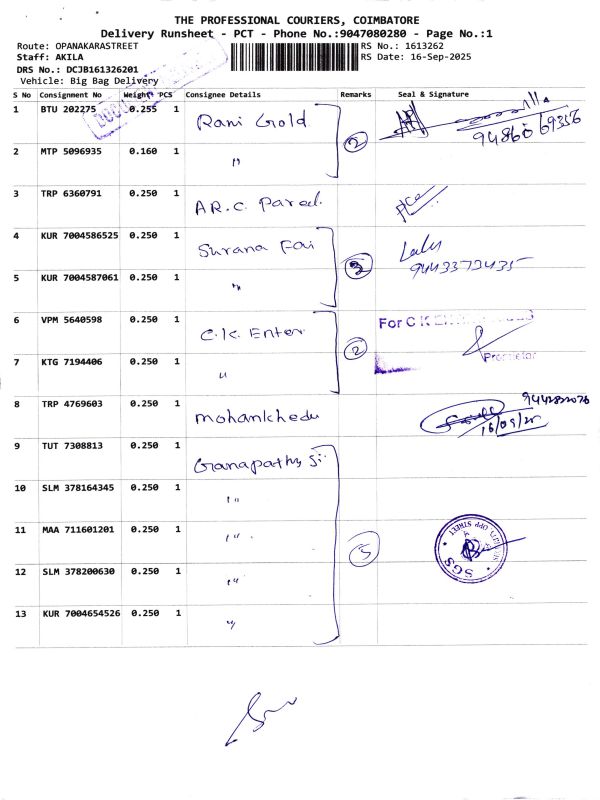 THE PROFESSIONAL COURIERS, COIMBATORE
Delivery Runsheet - PCT - Phone No.:9047080280 - Page No.:1
Route: OPANAKARASTREET
RS No.: 1613262
Staff: AKILA
RS Date: 16-Sep-2025
DRS No.: DCJB161326201
Vehicle: Big Bag Delivery
S No Consignment No Weight PCS Consignee Details Remarks Seal & Signature
1 BTU 202275 0.255 1 Rani Gold 2 94860 69356
2 MTP 5096935 0.160 1 "
3 TRP 6360791 0.250 1 A.R.C. Parcel.
4 KUR 7004586525 0.250 1 Surana Fai 94433 73435
5 KUR 7004587061 0.250 1 "
6 VPM 5640598 0.250 1 C.K. Enter 2 For C K
Proprietor
7 KTG 7194406 0.250 1 "
8 TRP 4769603 0.250 1 16/09/25
9 TUT 7308813 0.250 1 Ganapathy Si
10 SLM 378164345 0.250 1 "
11 MAA 711601201 0.250 1 " 5 OPP STREET SGS
12 SLM 378200630 0.250 1 "
13 KUR 7004654526 0.250 1 "